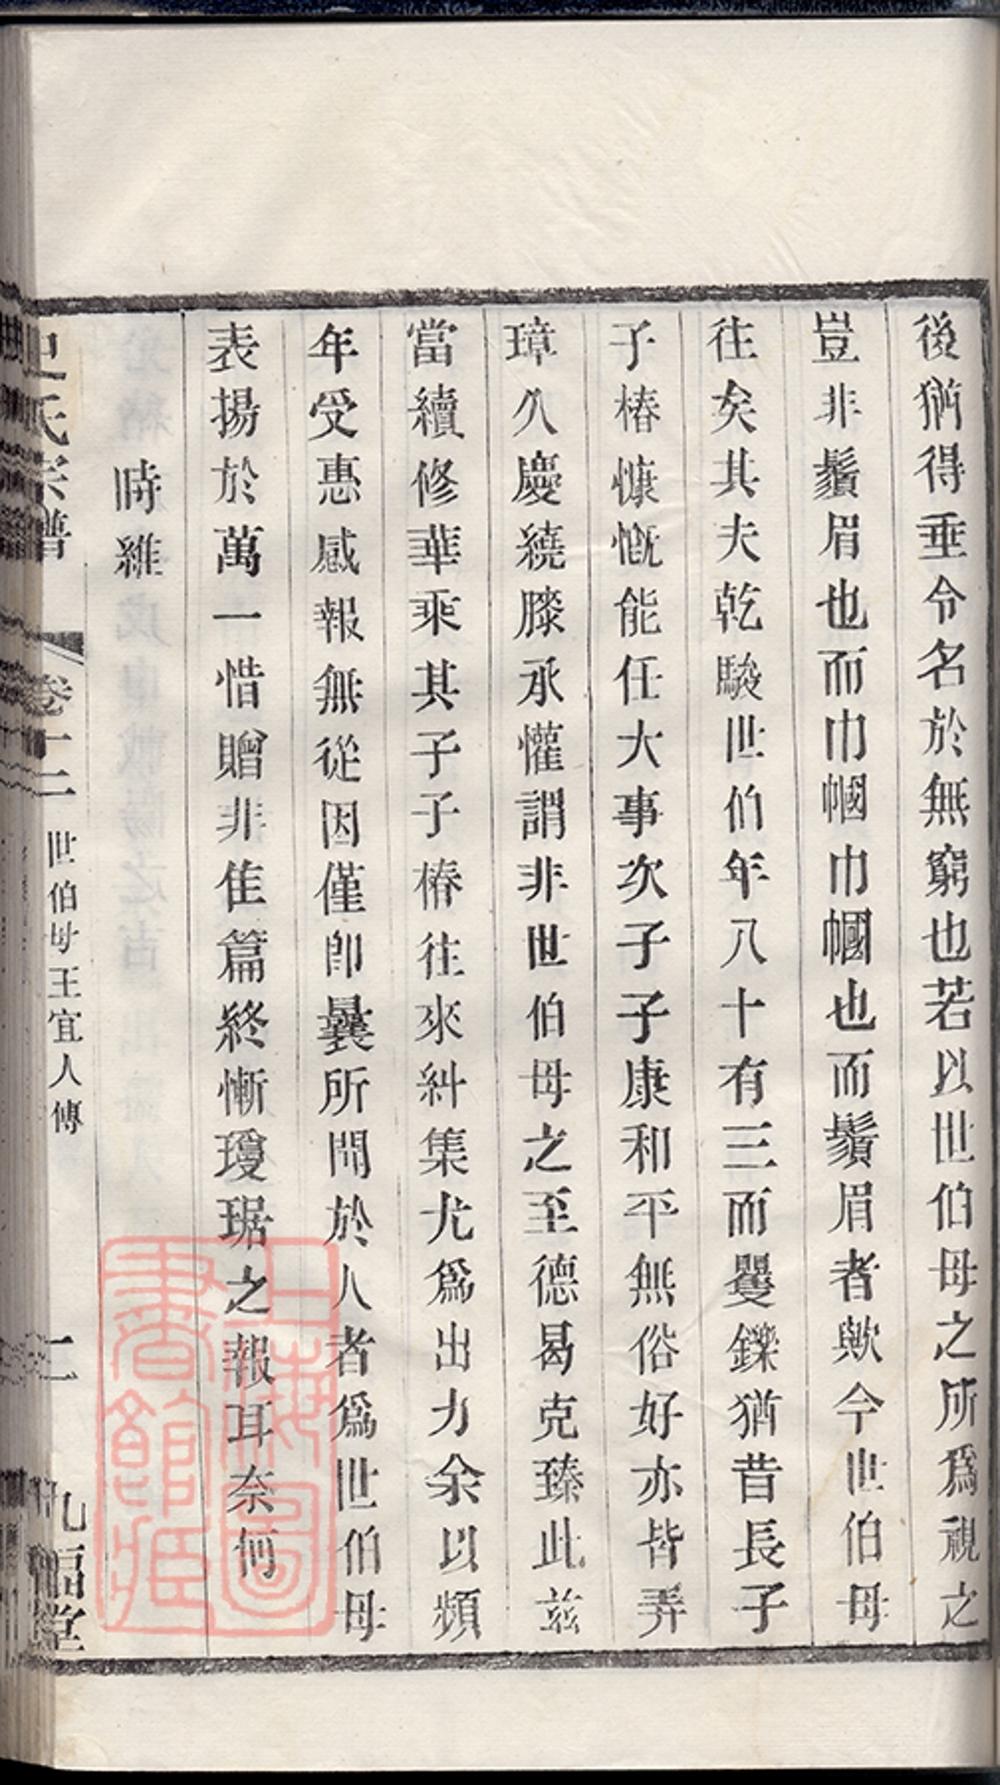 後猶得垂令名於無窮也若以世伯母之所爲視之
豈非鬚眉也而巾幗巾幗也而鬚眉者歟今世伯母
往矣其夫乾駿世伯年八十有三而矍鑠猶昔長子
子椿慷慨能任大事次子子康和平無俗好亦皆弄
璋久慶繞膝承懽謂非世伯母之至德曷克臻此茲
當續修華乘其子子椿往來糾集尤爲出力余以頻
年受惠感報無從因僅卽曩所聞於人者爲世伯母
表揚於萬一惜贈非隹篇終慚瓊琚之報耳奈何
時維
史氏宗譜
卷十二
世伯母王宜人傳
二
九福堂
上海圖書館藏